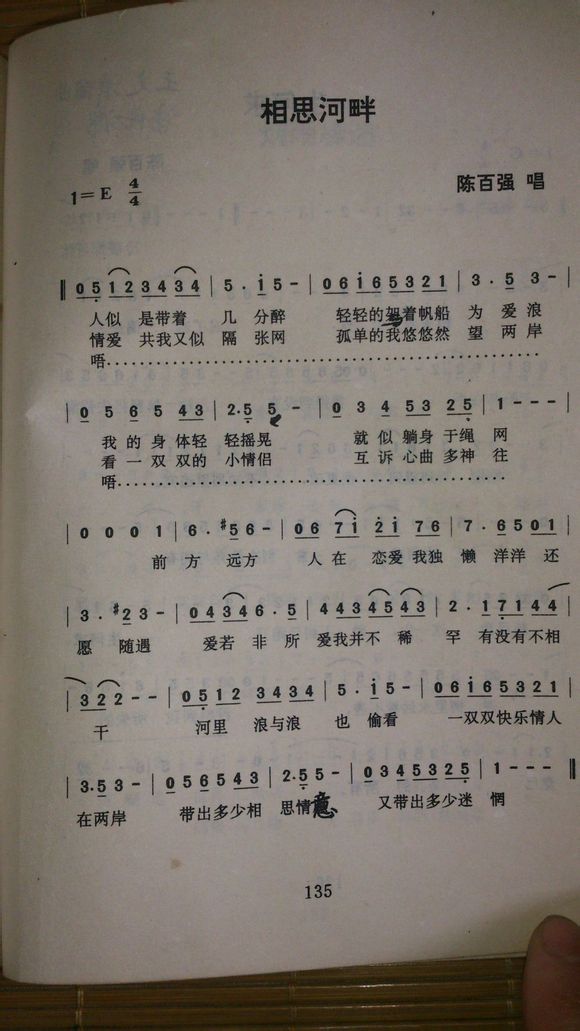 相思河畔
1=E 4/4
陈百强 唱
‖ 0 5 1 2 3 4 3 4 | 5 · i 5 - | 0 6 i 6 5 3 2 1 | 3 · 5 3 - |
人似 是带着 几 分醉 轻轻的驾着帆船 为 爱浪
情爱 共我又似 隔 张网 孤单的我悠悠然 望 两岸
唔……
| 0 5 6 5 4 3 | 2 · 5 5 - | 0 3 4 5 3 2 5 | 1 - - - |
我 的 身 体轻 轻摇晃 就 似 躺身 于绳 网
看 一 双 双的 小情侣 互 诉 心曲 多神 往
唔……
| 0 0 0 1 | 6 · #5 6 - | 0 6 7 i 2 i 7 6 | 7 · 6 5 0 1 |
前 方 远方 人 在 恋爱 我独 懒 洋洋 还
| 3 · #2 3 - | 0 4 3 4 6 · 5 | 4 4 3 4 5 4 3 | 2 · 1 7 1 4 4 |
愿 随遇 爱若 非 所 爱我并不 稀 罕 有没有不相
| 3 2 2 - - | 0 5 1 2 3 4 3 4 | 5 · i 5 - | 0 6 i 6 5 3 2 1 |
干 河里 浪与浪 也 偷看 一双双快乐情人
| 3 · 5 3 - | 0 5 6 5 4 3 | 2 · 5 5 - | 0 3 4 5 3 2 5 | 1 - - - ‖
在两岸 带出多少相 思情意 又带出多少迷 惘
135